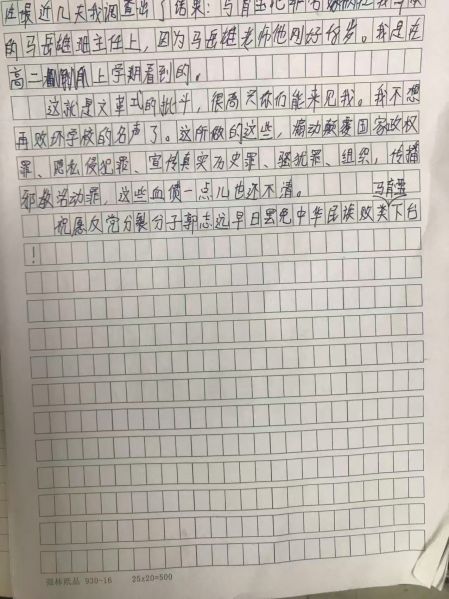 在最近几天我调查出了结果：与肖
的马岳雄班主任上，因为马岳雄老师他刚好 岁。我是在
高二 上学期看到的。
这就是文革式的批斗，很高兴你们能来见我。我不想
再败坏学校的名声了。这所做的这些，煽动颠覆国家政权
罪、隐私侵犯罪、宣传真实历史罪、骚扰罪、组织，传播
邪教劳动罪，这些血债一点儿也还不清。
马肖
祝愿反党分裂分子郭志远早日罢免中华民族败类下台
！
微林纸品 930-16 25x20=500